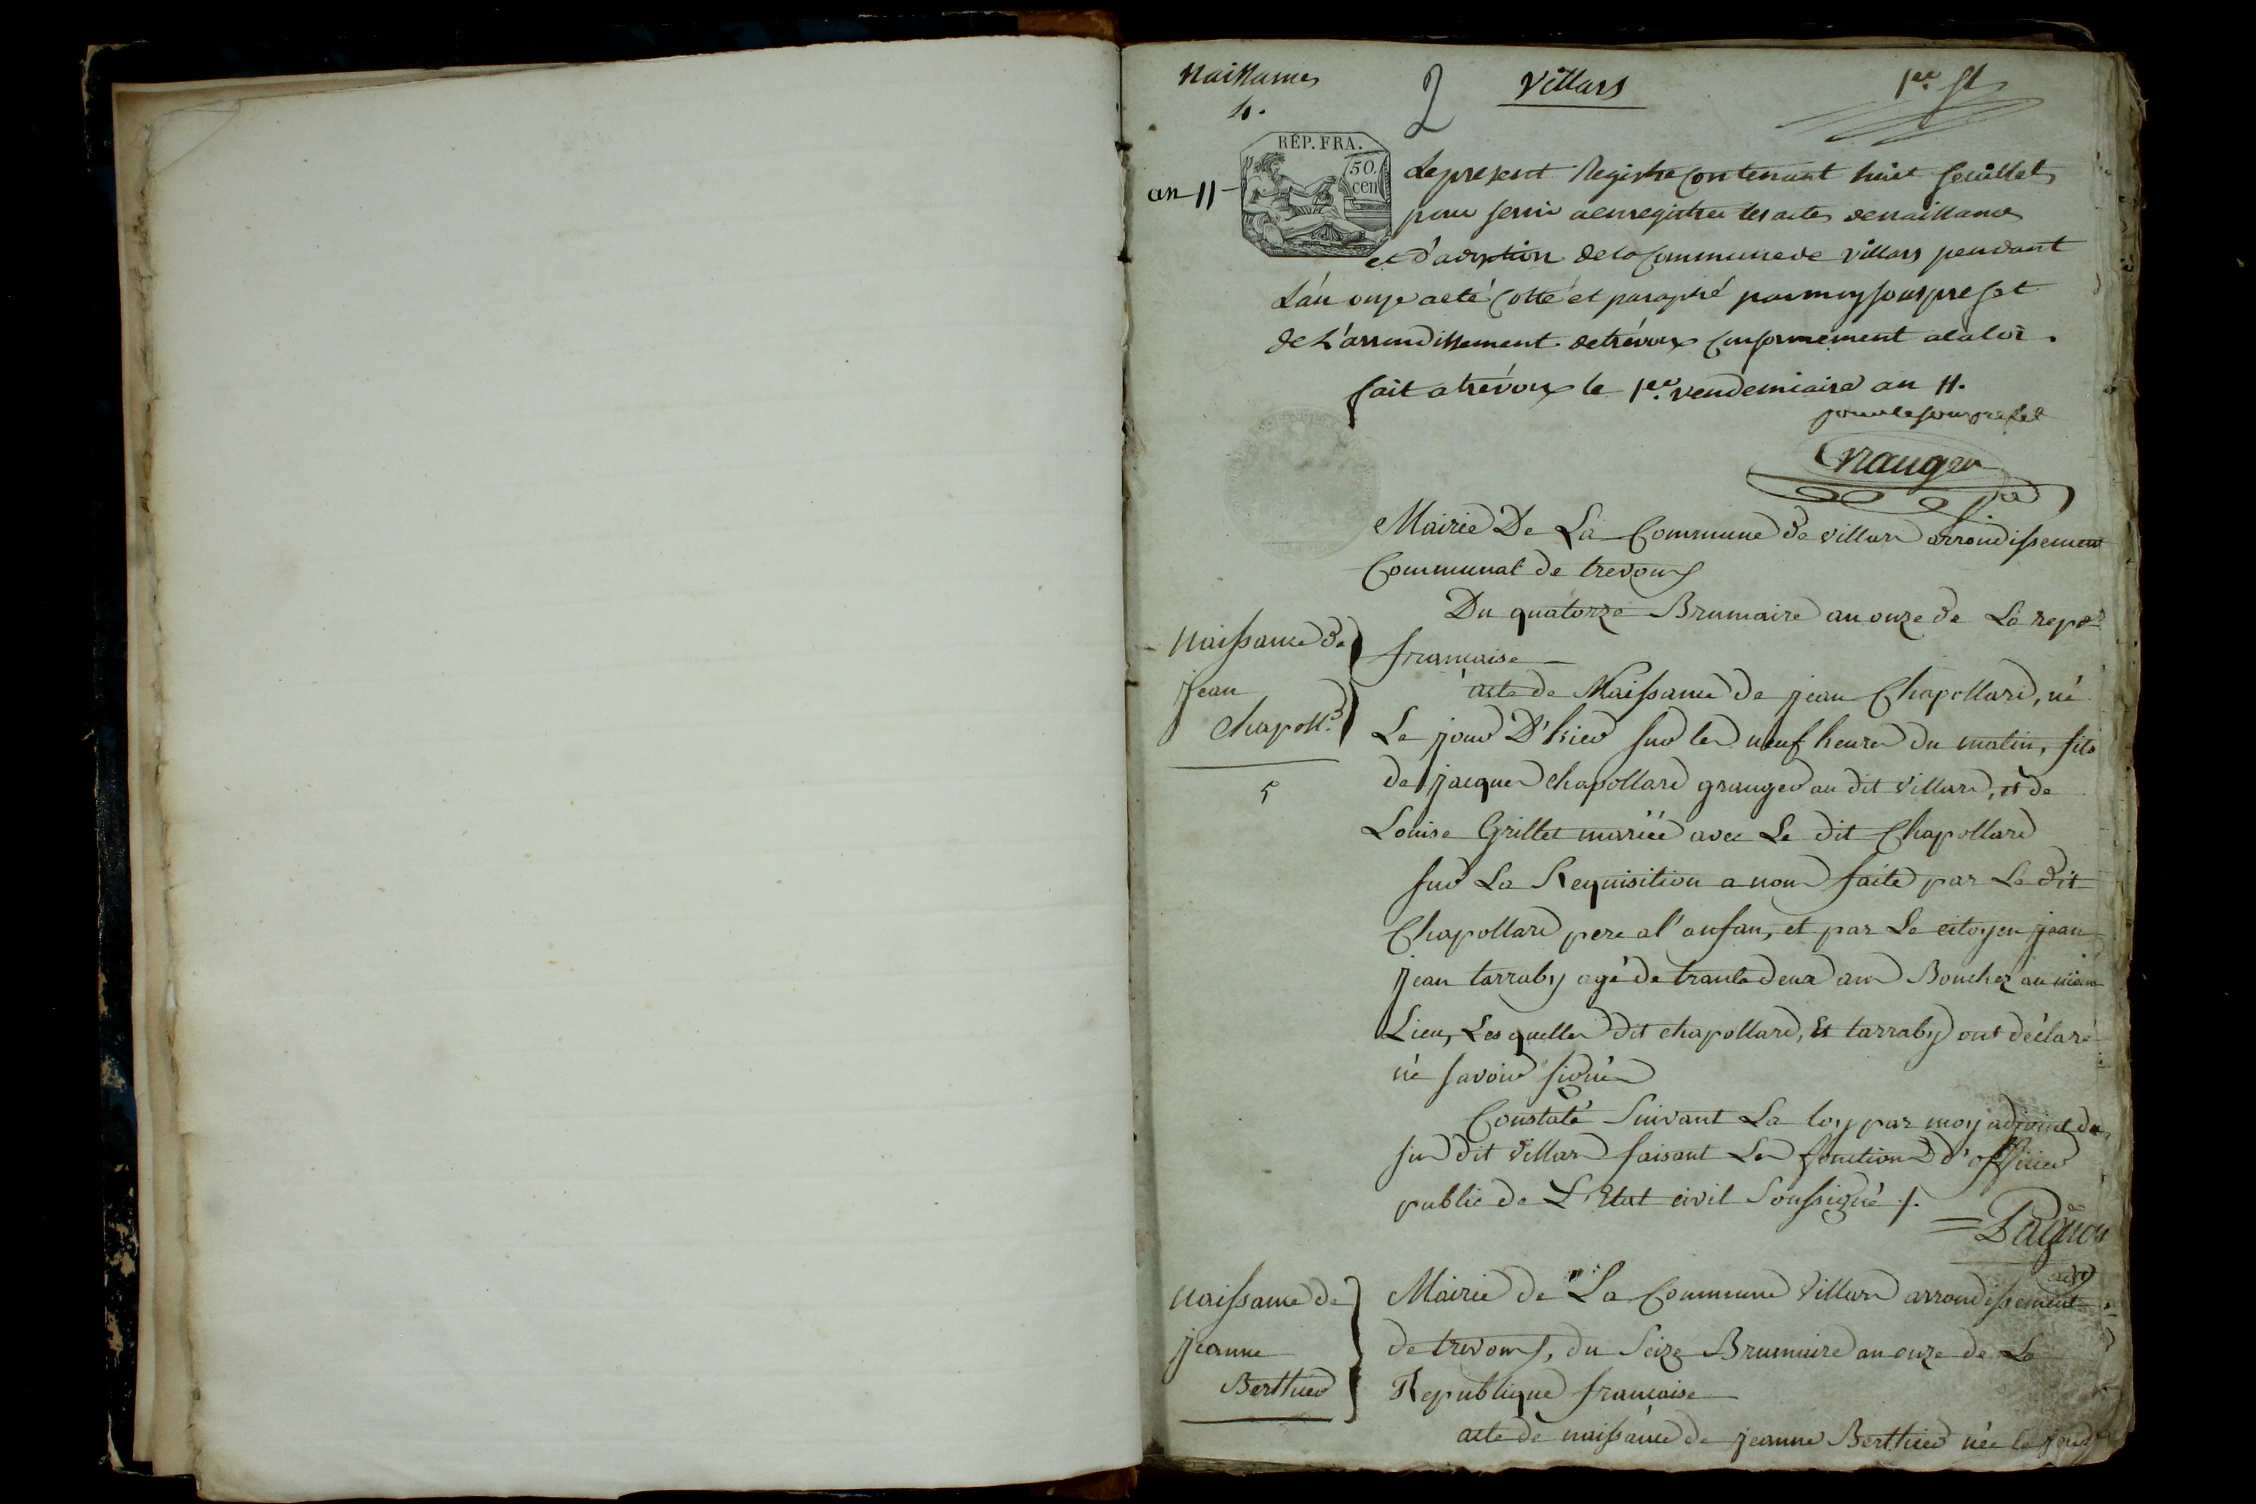 Naissances
2
Villars
1er ft
4.
RÉP. FRA.
50.
cen
an 11
Le present Registre contenant huit feuillets
pour servir a enregistrer les actes de naissance
et d'adoption de la Commune de Villars pendant
L'an onze a eté Cotté et paraphé par moy souspreset
de L'arrondissement de trévoux Conformement a la loi.
fait a trévoux le 1er. vendemiaire an 11.
pour le souprefet
Mairie De La Commune de villars arrondissement
Communal de trevoux
Du quatorze Brumaire an onze de La repe.
francaise
Naissance de
jean
Chapolld.
5
acte de Naissance de jean Chapollard, né
Le jour D'hier sur les neuf heures du matin, fils
de jacques Chapollard granger au dit villars, et de
Louise Grillet mariée avec Le dit Chapollard
sur La Requisition a nous faite par Le dit
Chapollard pere al'anfan, et par Le citoyen jean
jean tarraby agé de trante deux ans Boucher au meme
Lieu, Les quelles dit chapollard, Et tarraby ont déclaré
né savoir signér
Constaté Suivant La loy par moy adjoint du
sus dit villars faisant Les fonctions d'officier
public de L'Etat civil Soussigné ./.
Pagnon
adj
Naissance de
jeanne
Berthier
Mairie de La Commune Villars arrondissement
de trevoux, du Seize Brumaire an onze de La
Republique francaise
acte de naissance de jeanne Berthier née le jour